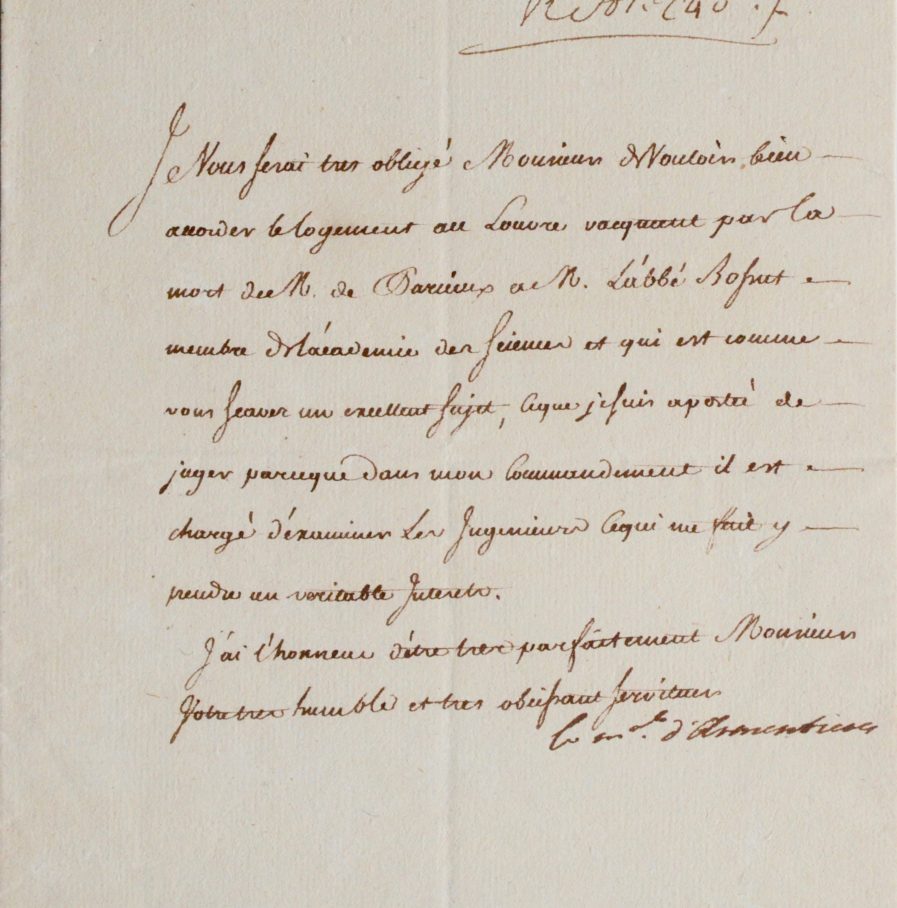 Je Vous serai tres obligé Monsieur de Vouloir bien
accorder le logement au Louvre vacquant par la
mort de M. de Parcieux a M. L'abbé Bossut
membre de l'académie des sciences et qui est comme
vous scavez un excellent sujet, ceque je suis a portée de
juger parceque dans mon Commandement il est
chargé d'éxaminer Les Ingenieurs Cequi me fait y
prendre un veritable Interets.
J'ai l'honneur d'étre tres parfaitement Monsieur
Votre tres humble et tres obeissant serviteur
le m.al d'Armentieres